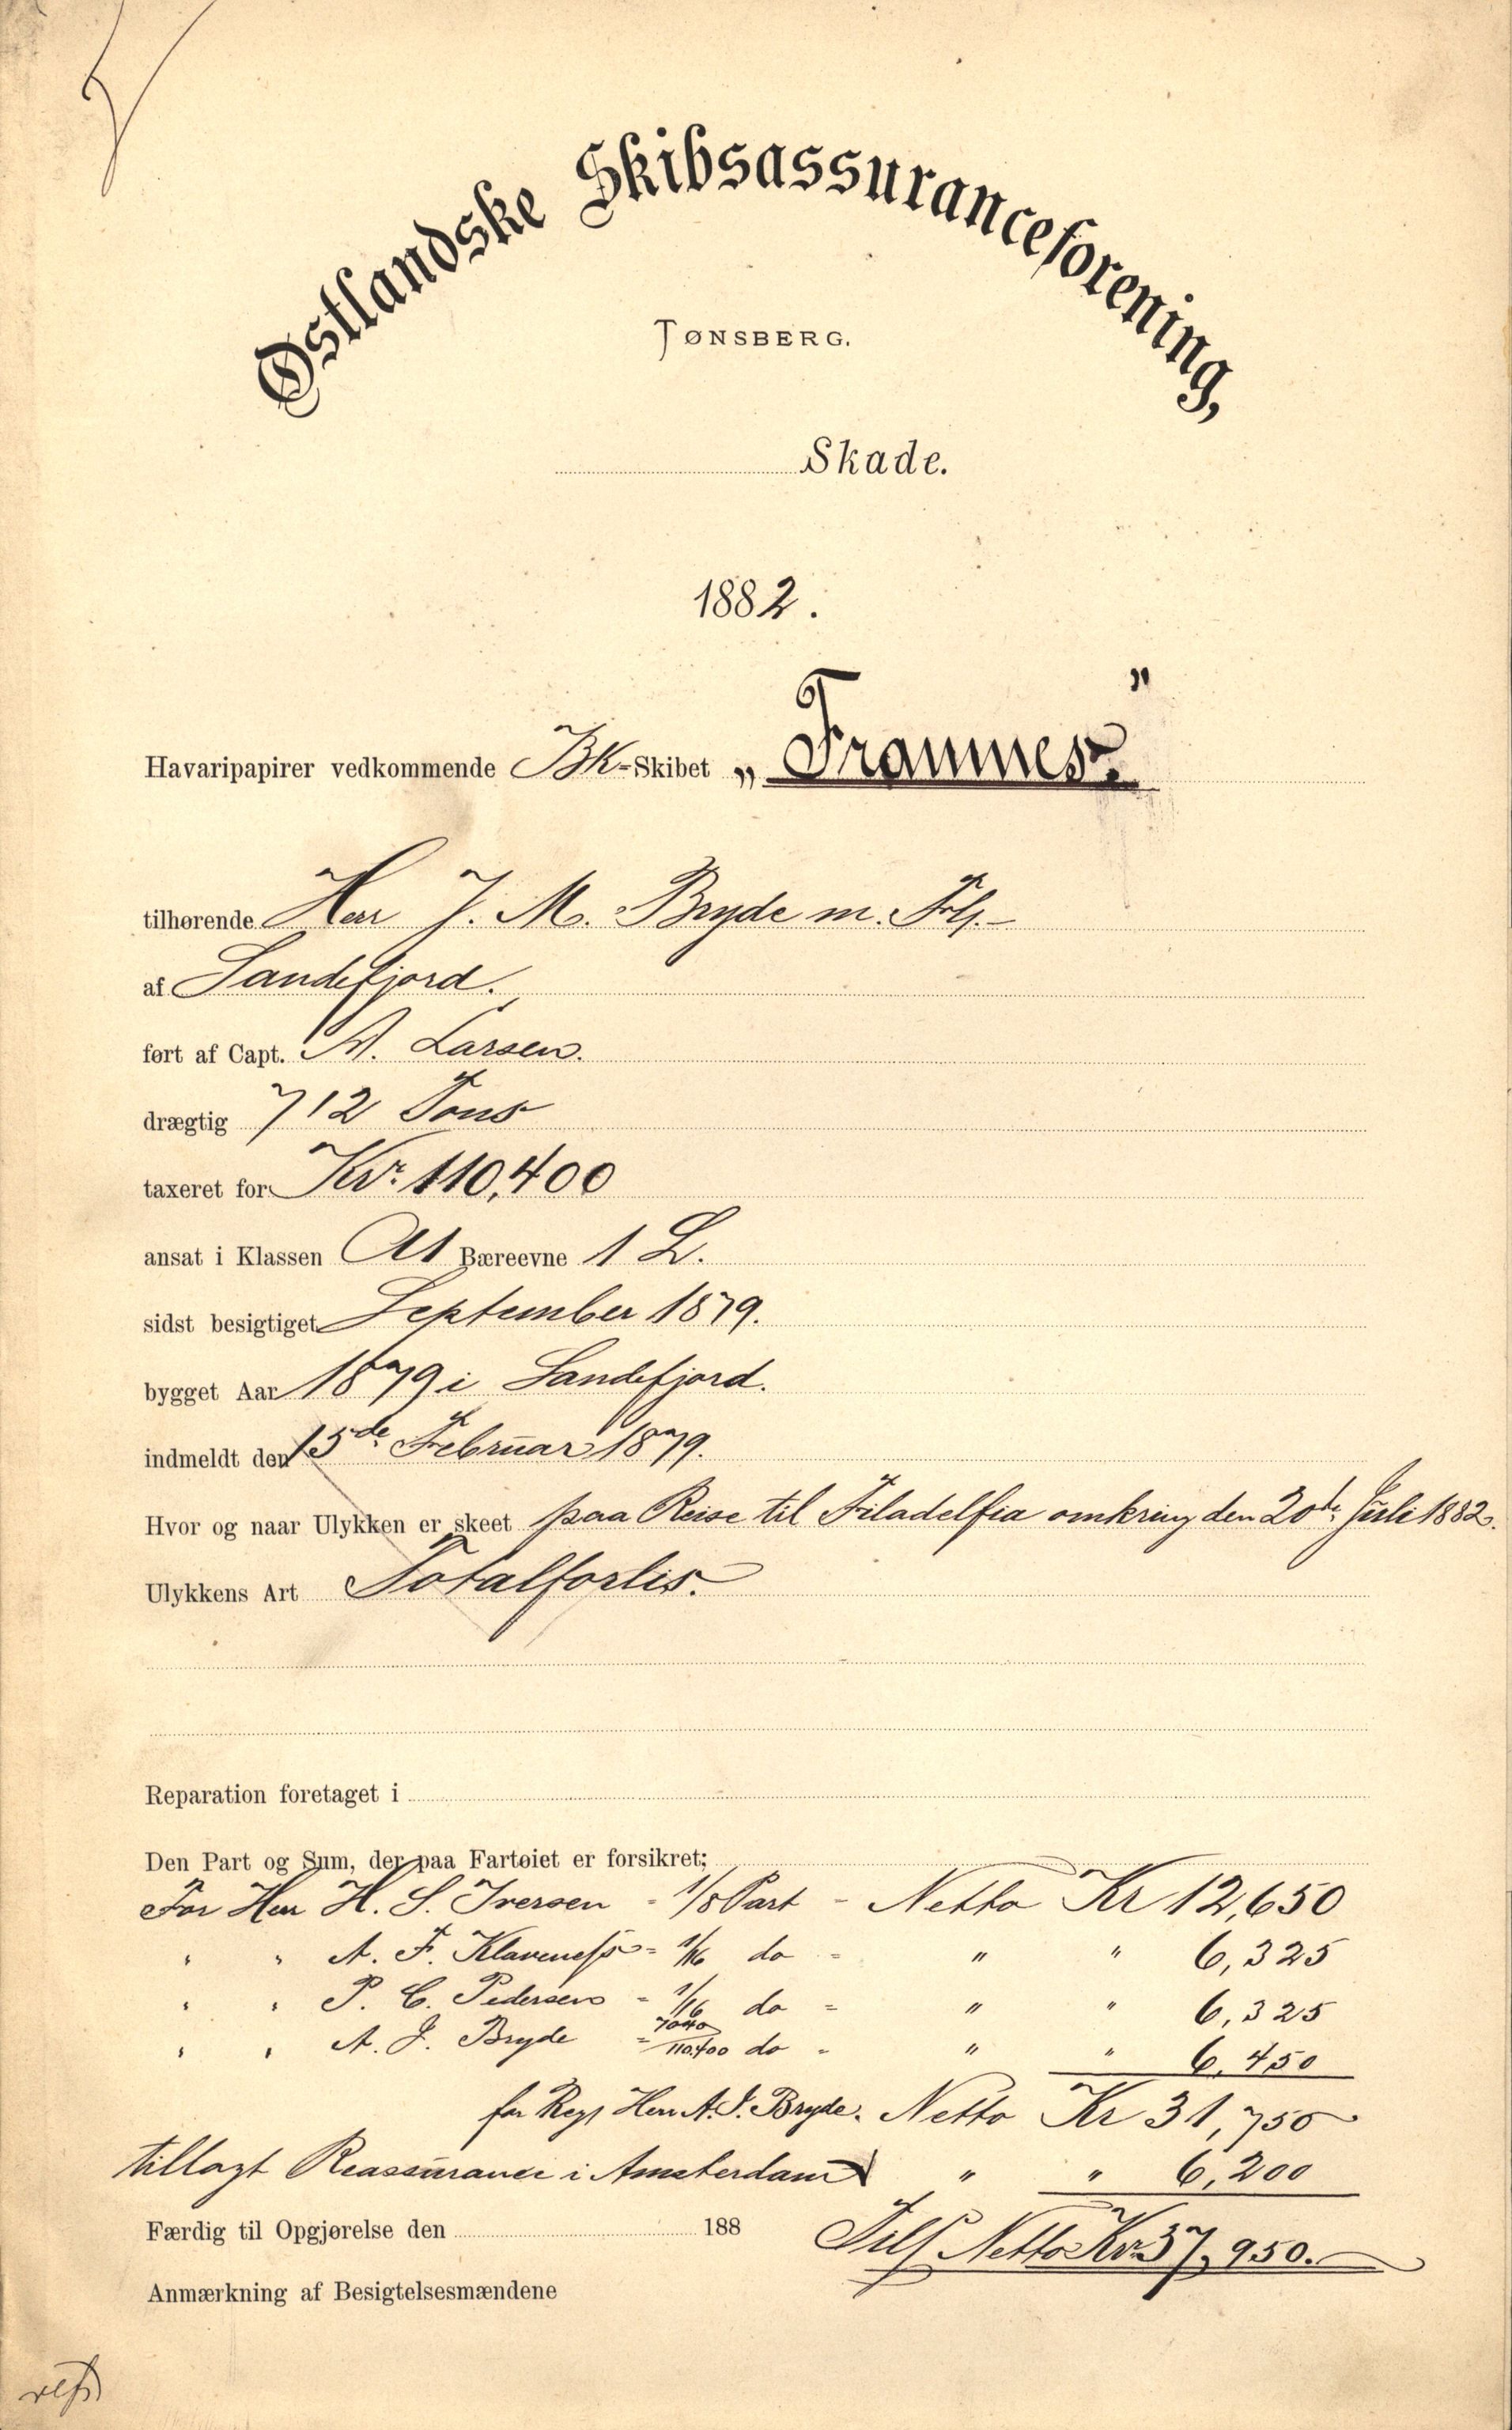 Østlandske Skibsassuranceforening,
TØNSBERG.
Skade.
1882.
Havaripapirer vedkommende Bk-Skibet „Framnes"
tilhørende Herr J. M. Bryde m. Flf.
af Sandefjord.
ført af Capt. A. Larsen.
drægtig 712 Tons
taxeret for Kr. 110,400
ansat i Klassen A1 Bæreevne 1 L.
sidst besigtiget September 1879.
bygget Aar 1879 i Sandefjord.
indmeldt den 15de Februar 1879.
Hvor og naar Ulykken er skeet paa Reise til Filadelfia omkring den 20de Juli 1882.
Ulykkens Art Totalforlis.
Reparation foretaget i
Den Part og Sum, der paa Fartøiet er forsikret;
For Herr H. S. Iversen - 1/8 Part - Netto Kr 12,650
" " A. F. Klaveness - 1/16 do - " " 6,325
" " P. C. Pedersen - 1/16 do - " " 6,325
" " A. J. Bryde - 7040/110.400 do - " " 6,450
for Regn Herr A. J. Bryde. Netto Kr 31,750
tillagt Reassurance i Amsterdam " " 6,200
Færdig til Opgjørelse den 188 Tils Netto Kr. 37,950.
Anmærkning af Besigtelsesmændene